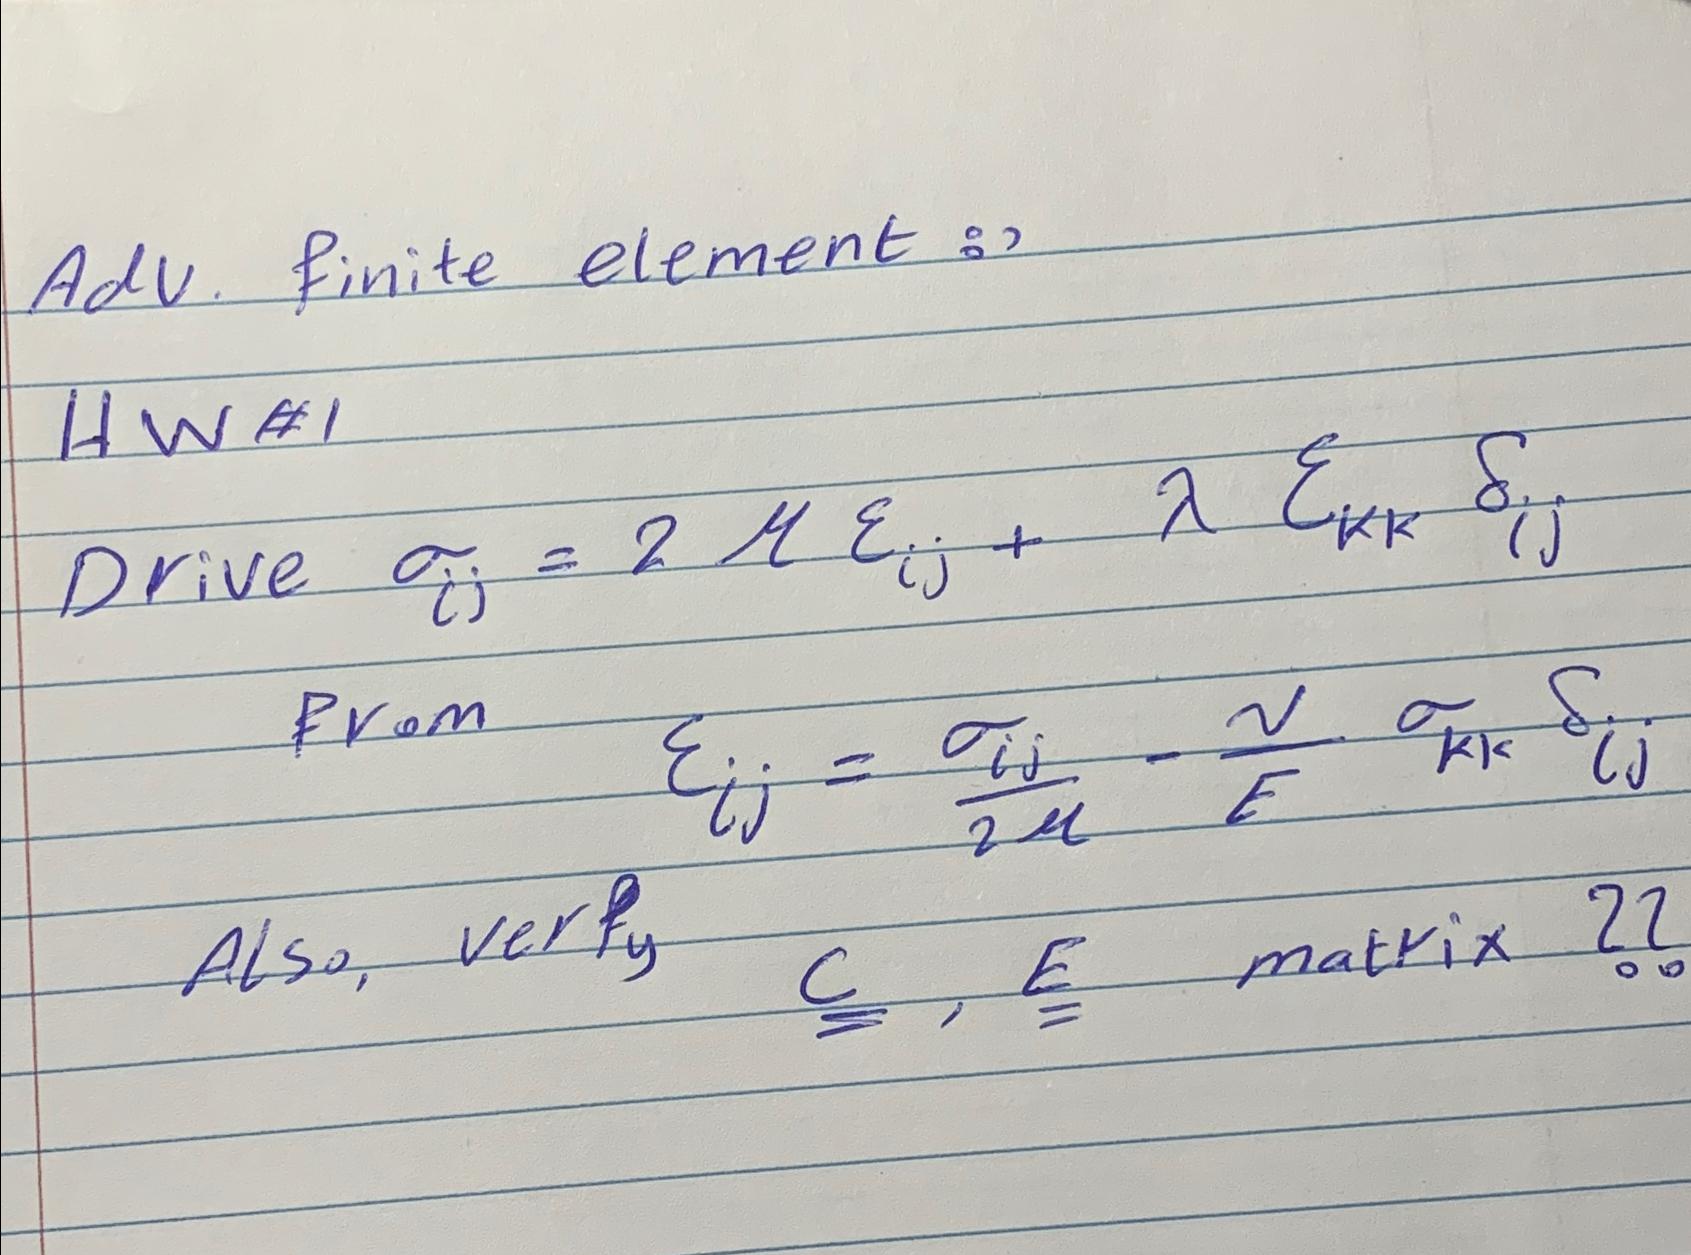 Adv. finite element :,
HW #1
Drive σij = 2 μ εij + λ εkk δij
From εij = σij / 2μ - ν / E σkk δij
Also, verfy C, E matrix ??